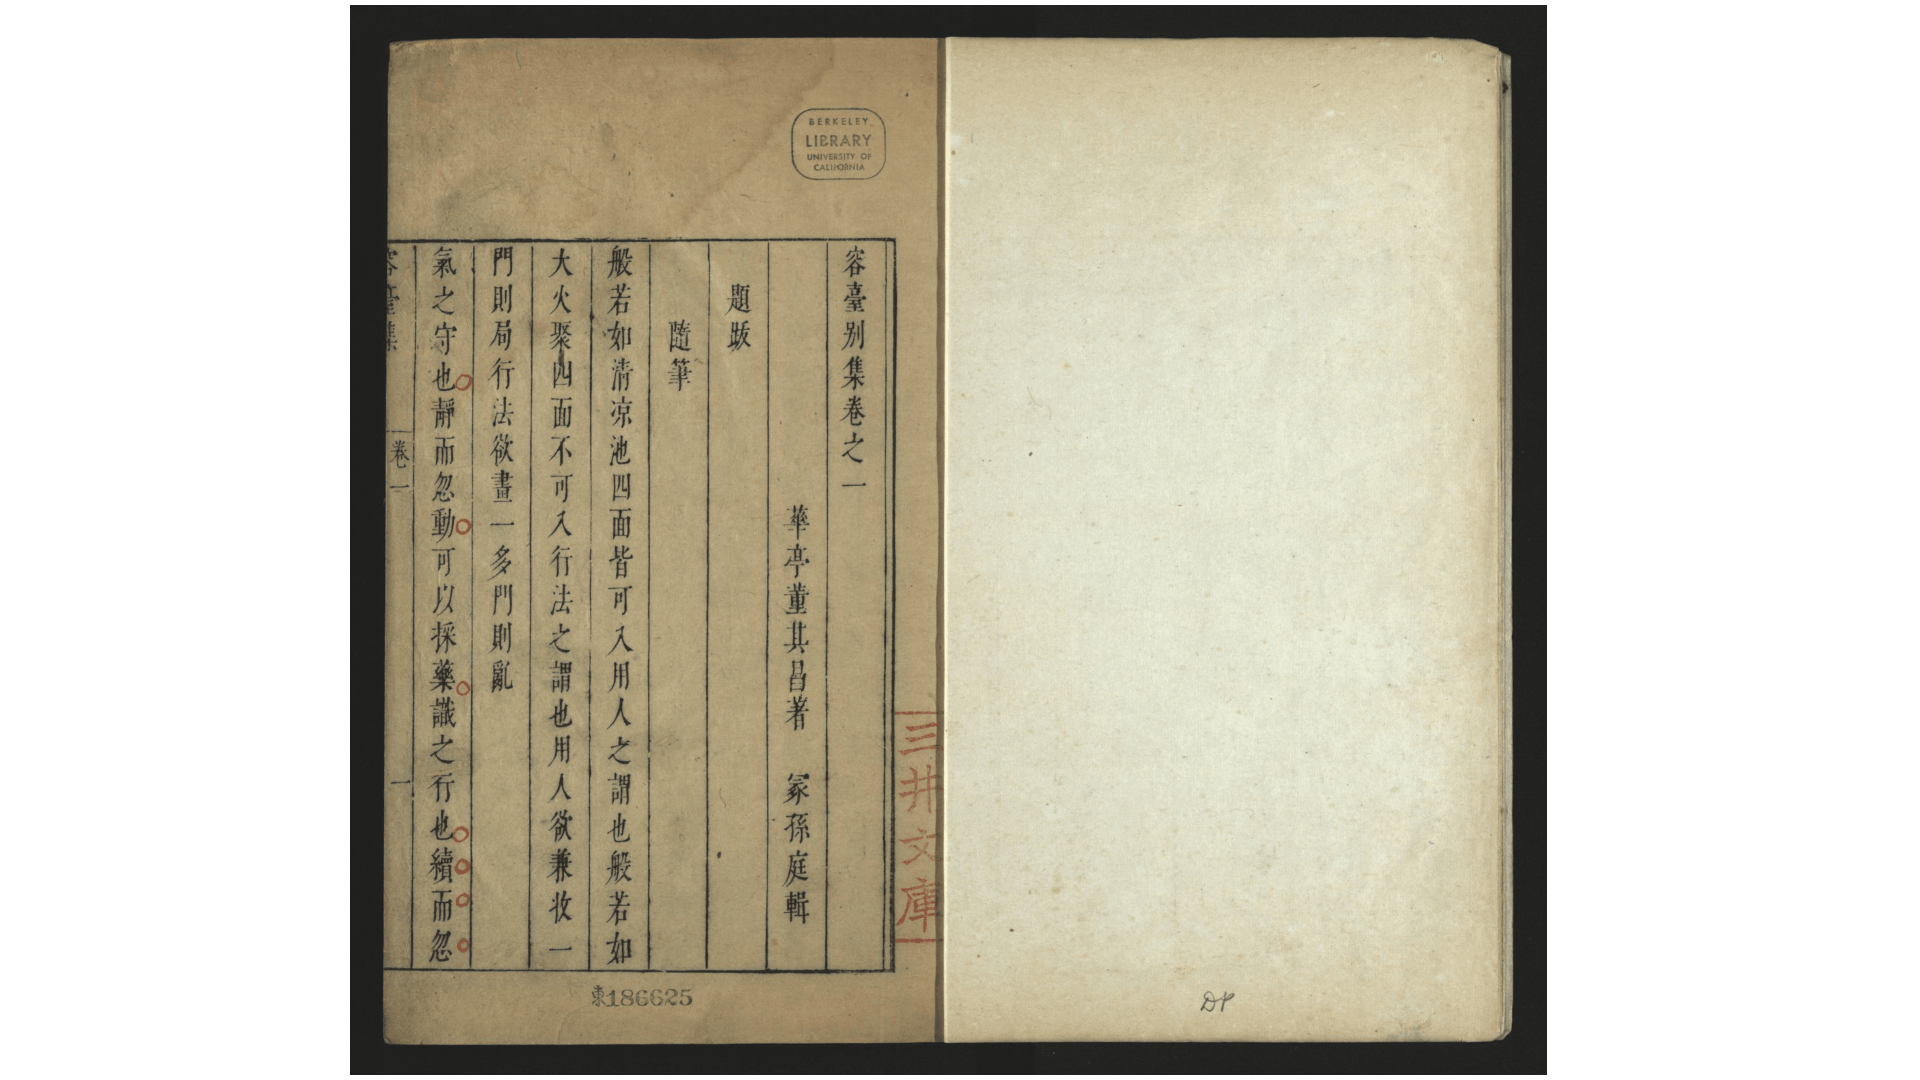 容臺别集卷之一
華亭董其昌著　冢孫庭輯
題跋
隨筆
般若如清凉池四面皆可入用人之謂也般若如
大火聚四面不可入行法之謂也用人欲兼收一
門則局行法欲畫一多門則亂
氣之守也靜而忽動可以採藥識之行也續而忽
容臺集　卷一　一
BERKELEY
LIBRARY
UNIVERSITY OF
CALIFORNIA
三井文庫
東186625